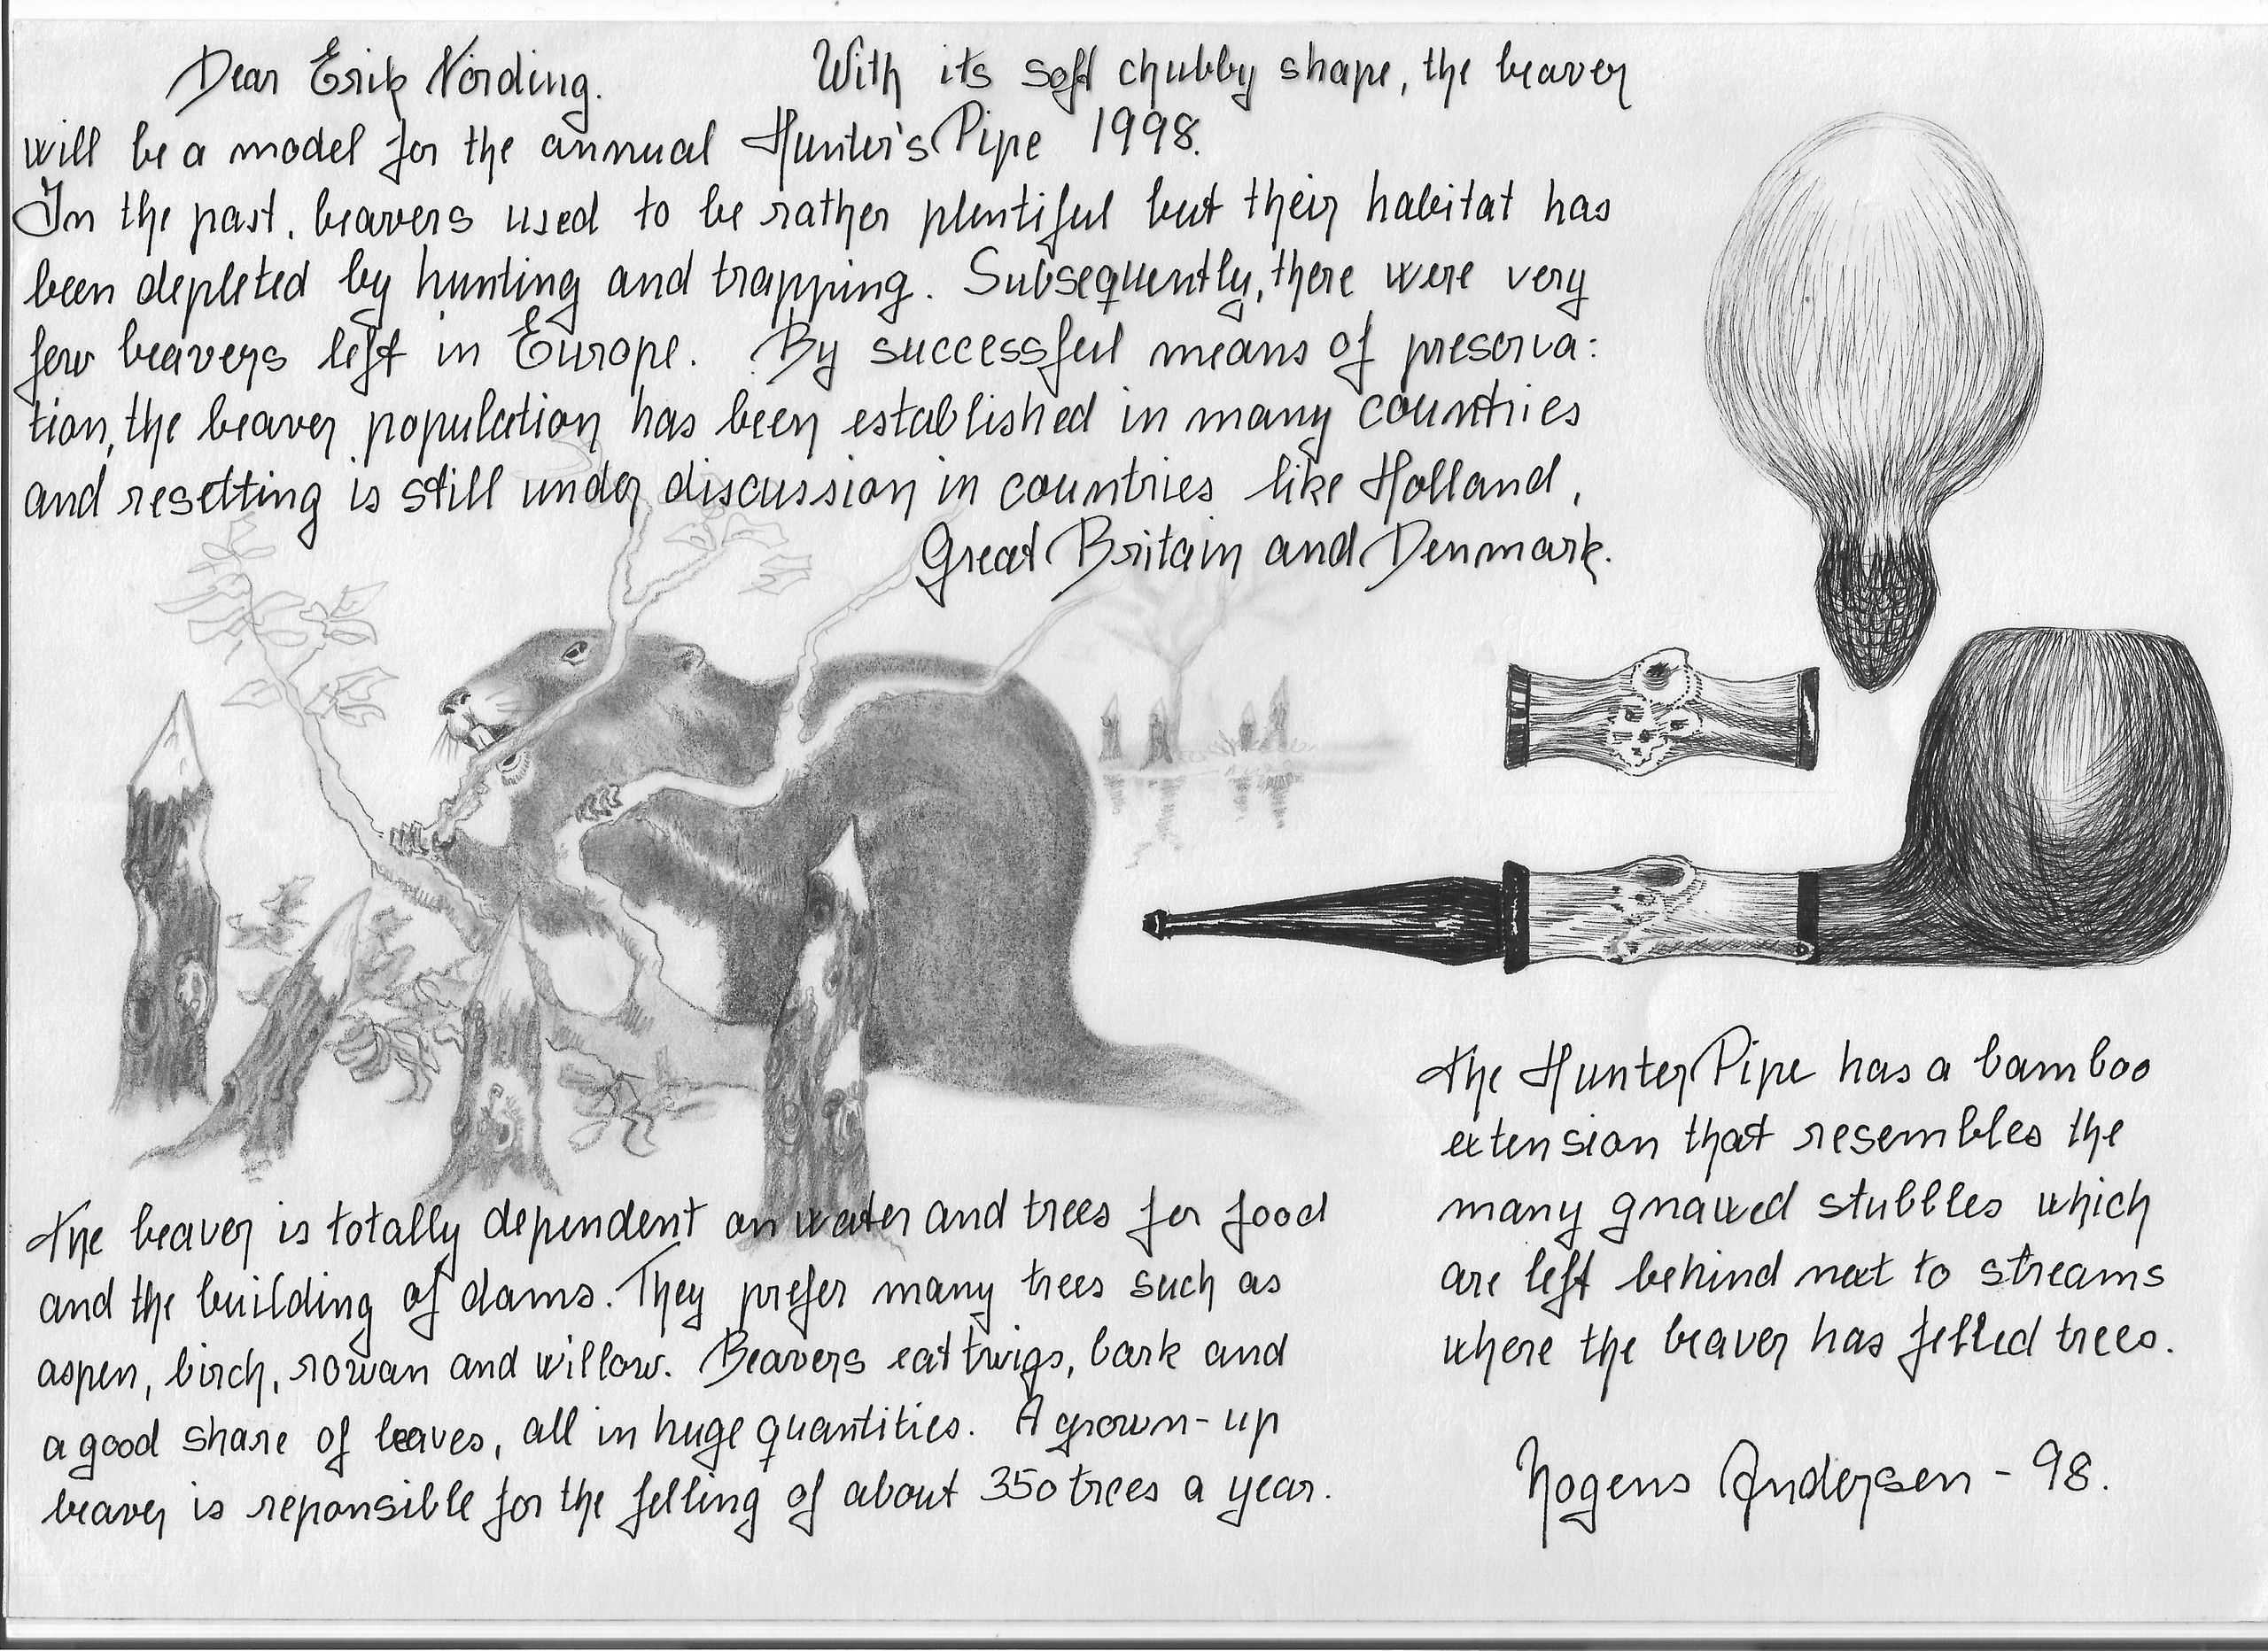 Dear Erik Nörding. With its soft chubby shape, the beaver
will be a model for the annual Hunter's Pipe 1998.
In the past, beavers used to be rather plentiful but their habitat has
been depleted by hunting and trapping. Subsequently, there were very
few beavers left in Europe. By successful means of preserva:
tion, the beaver population has been established in many countries
and resetting is still under discussion in countries like Holland,
Great Britain and Denmark.
The Hunter Pipe has a bamboo
extension that resembles the
many gnawed stubbles which
are left behind next to streams
where the beaver has felled trees.
The beaver is totally dependent on water and trees for food
and the building of dams. They prefer many trees such as
aspen, birch, rowan and willow. Beavers eat twigs, bark and
a good share of leaves, all in huge quantities. A grown-up
beaver is reponsible for the felling of about 350 trees a year.
Mogens Andersen - 98.